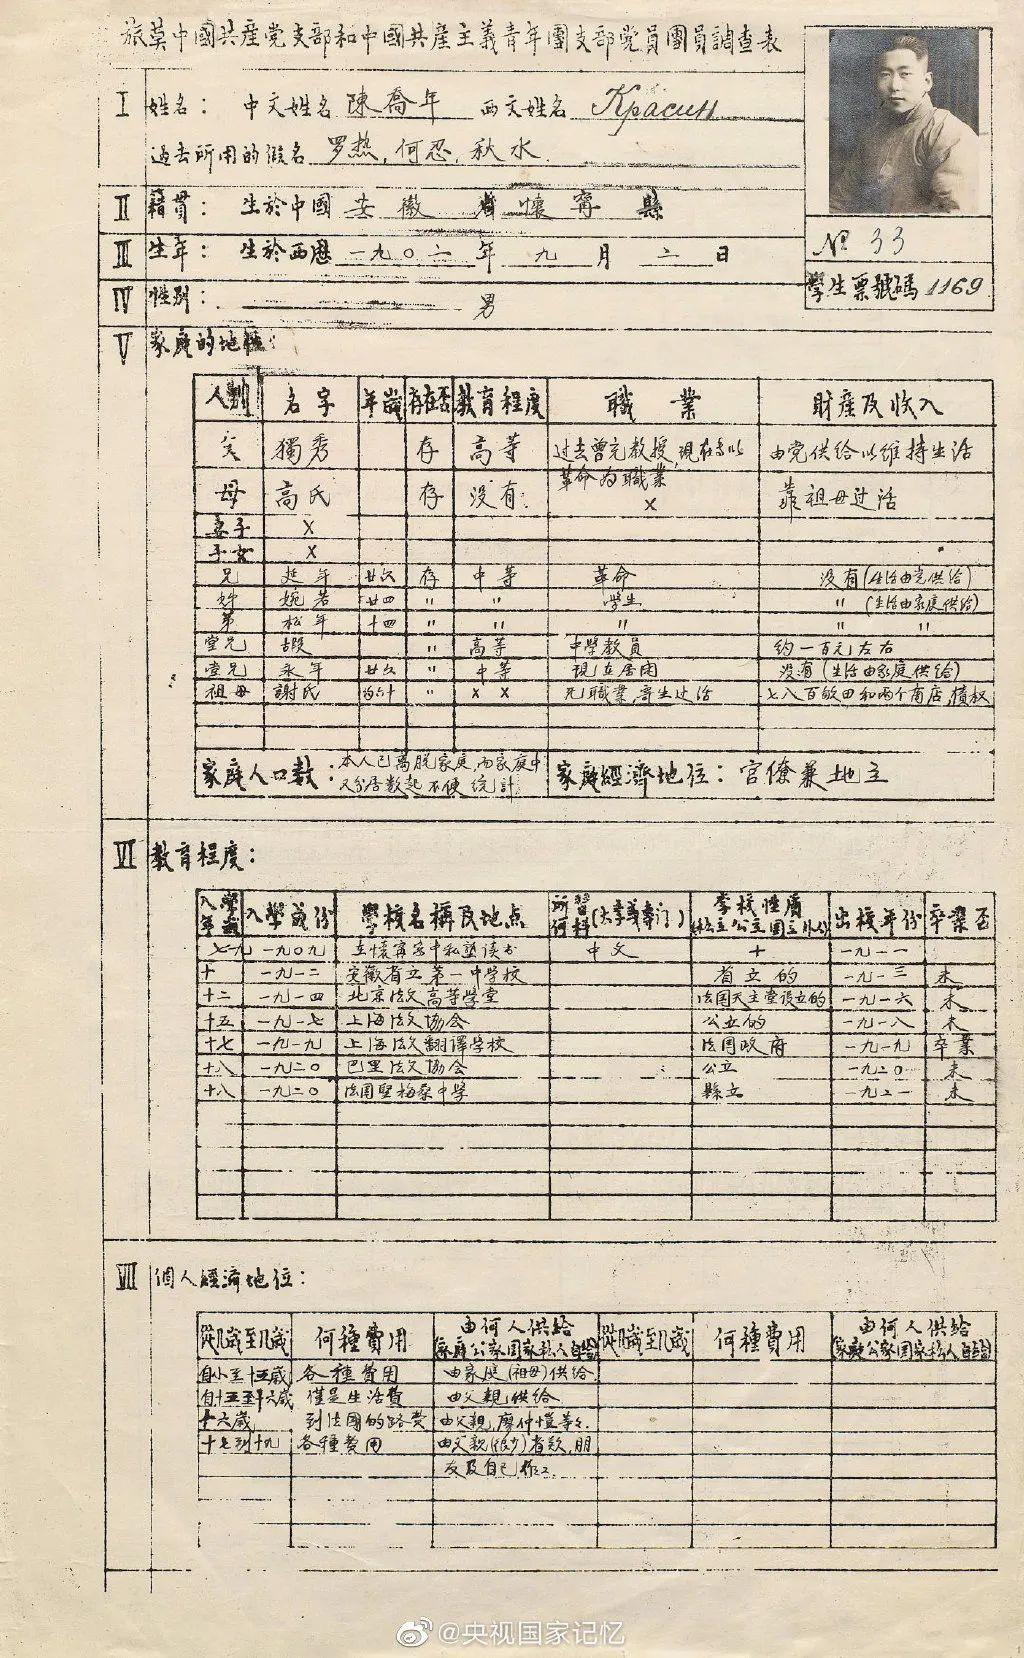 旅莫中國共産党支部和中國共産主義青年團支部党員團員調查表
I 姓名： 中文姓名 陳喬年 西文姓名 Красин
過去所用的假名 罗热，何忍，秋水
II 籍貫： 生於中國 安徽 省 懷寧 縣
№ 33
III 生年： 生於西歷 一九〇二 年 九 月 二 日
學生票號碼 1169
IV 性别： 男
V 家庭的地位：
人别 名字 年歲 存在否 教育程度 職業 財産及收入
父 獨秀 存 高等 过去曾充教授，現在以革命为職業 由党供给以維持生活
母 高氏 存 没有 × 靠祖母过活
妻子 ×
子女 ×
兄 延年 廿六 存 中等 革命 没有(生活由党供给)
姊 婉若 廿四 〃 〃 学生 〃 (生活由家庭供给)
弟 松年 十四 〃 〃 〃 〃 〃
堂兄 嘏 〃 高等 中學教員 约一百元左右
堂兄 永年 廿六 〃 中等 現在居閑 没有(生活由家庭供给)
祖母 謝氏 〃 × × 无職業，寄生过活 七八百畝田和两个商店，債权
家庭人口数： 本人已离脱家庭，而家庭中又分居数起不便統計 家庭經濟地位： 官僚兼地主
VI 教育程度：
入學年歲 入學歲份 學校名稱及地点 所習何科(大學或專门) 學校性质(私立公立国立外人) 出校年份 卒業否
七 一九〇九 在懷寧家中私塾读书 中文 十 一九一一
十 一九一二 安徽省立第一中学校 省立的 一九一三 未
十二 一九一四 北京法文高等学堂 法国天主堂设立的 一九一六 未
十五 一九一七 上海法文協会 公立的 一九一八 未
十七 一九一九 上海法文翻譯学校 法国政府 一九一九 卒業
十八 一九二〇 巴里法文協会 公立 一九二〇 未
十八 一九二〇 法国聖梅桑中学 縣立 一九二一 未
VII 個人經濟地位：
從几歲至几歲 何種費用 由何人供給(家庭公家国家私人自给) 從几歲至几歲 何種費用 由何人供给(家庭公家国家私人自给)
自小至十五歲 各種費用 由家庭(祖母)供给
自十五至十六歲 僅是生活费 由父親供给
十六歲 到法國的路费 由父親，廖仲愷等
十七到十九 各種費用 由父親(很少)者欵，朋
友及自己作工.
@央视国家记忆